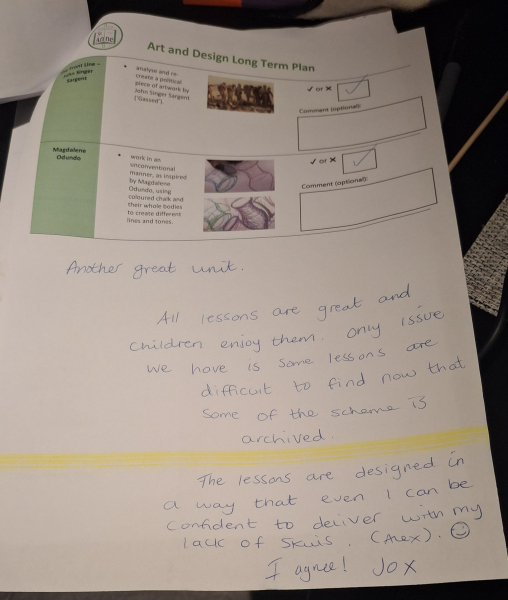 Art and Design Long Term Plan
Front Line –
John Singer
Sargent
• analyse and re-
create a political
piece of artwork by
John Singer Sargent
('Gassed').
✓ or ✗ ✓
Comment (optional):
Magdalene
Odundo
• work in an
unconventional
manner, as inspired
by Magdalene
Odundo, using
coloured chalk and
their whole bodies
to create different
lines and tones.
✓ or ✗ ✓
Comment (optional):
Another great unit.
All lessons are great and
children enjoy them. Only issue
we have is some lessons are
difficult to find now that
some of the scheme is
archived.
The lessons are designed in
a way that even I can be
confident to deliver with my
lack of skills. (Alex). ☺
I agree! Jox